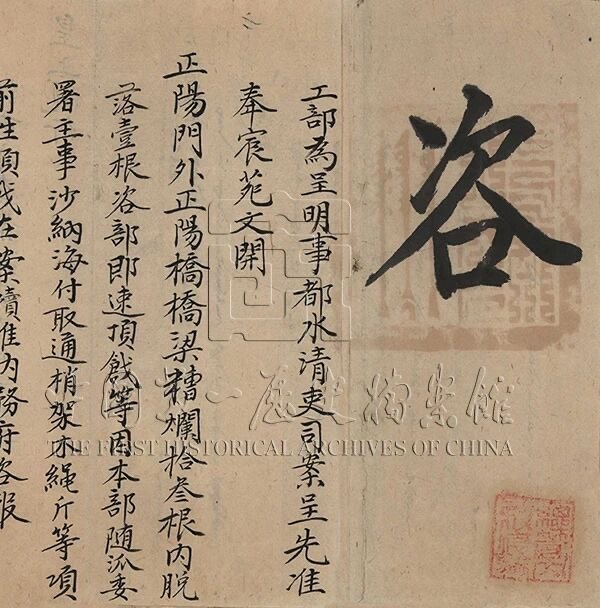 咨
工部為呈明事都水清吏司案呈先准
奉宸苑文開
正陽門外正陽橋橋梁糟爛拾叁根内脱
落壹根咨部即速頂戧等因本部随派委
署主事沙納海付取通梢架木繩斤等項
前往頂戧在案續准内務府咨報
中国第一历史档案馆
THE FIRST HISTORICAL ARCHIVES OF CHINA